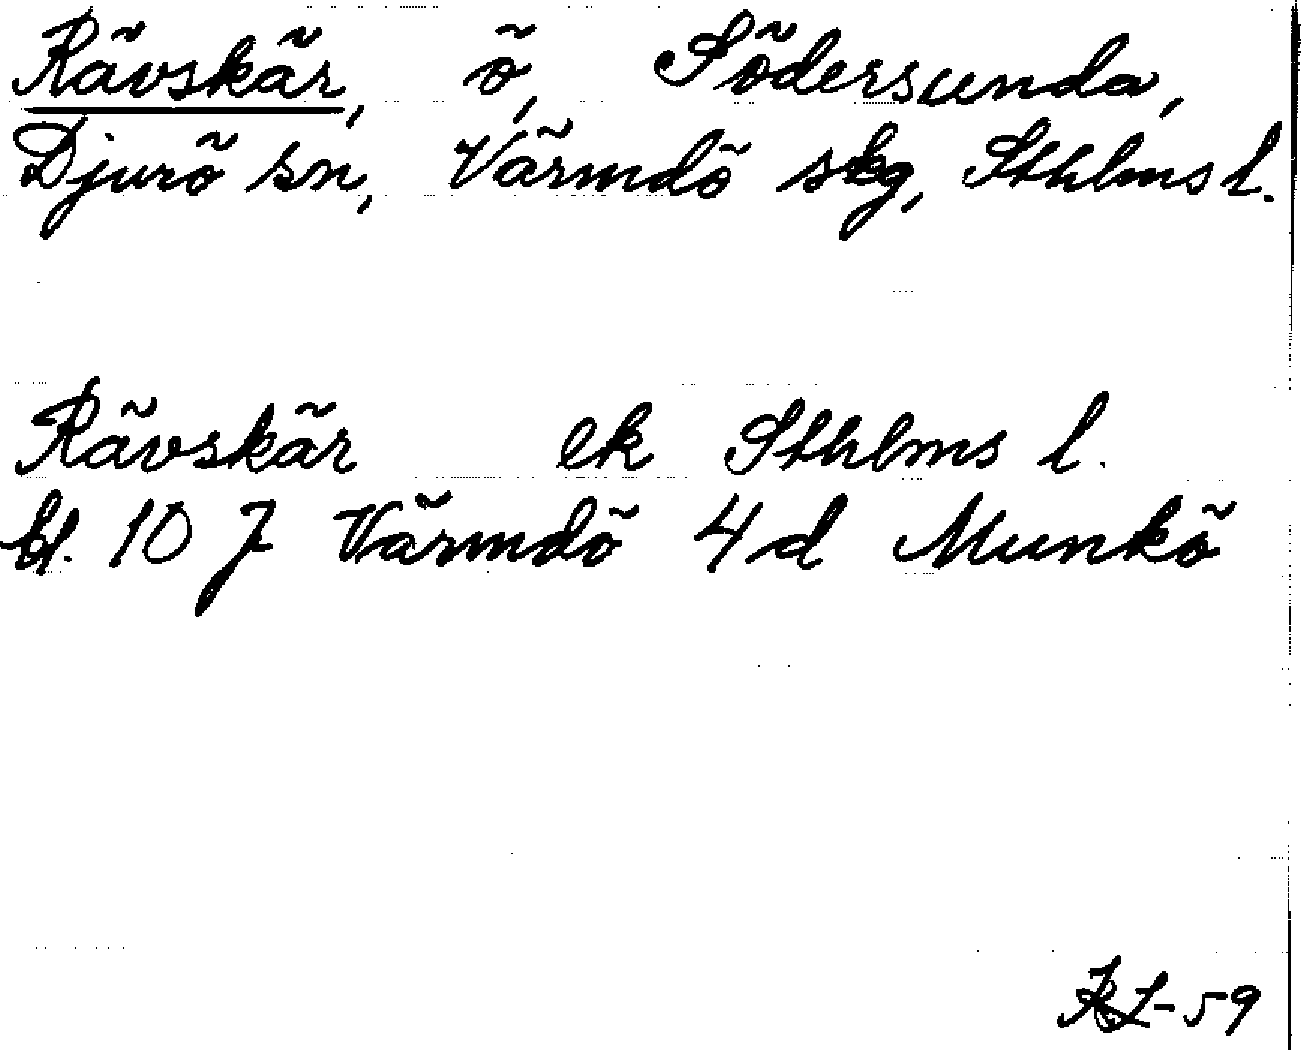 Rävskär, ö, Södersunda,
Djurö sn, Värmdö skg, Sthlms l.
Rävskär ek Sthlms l.
bl. 10 7 Värmdö 4d Munkö
RL-59